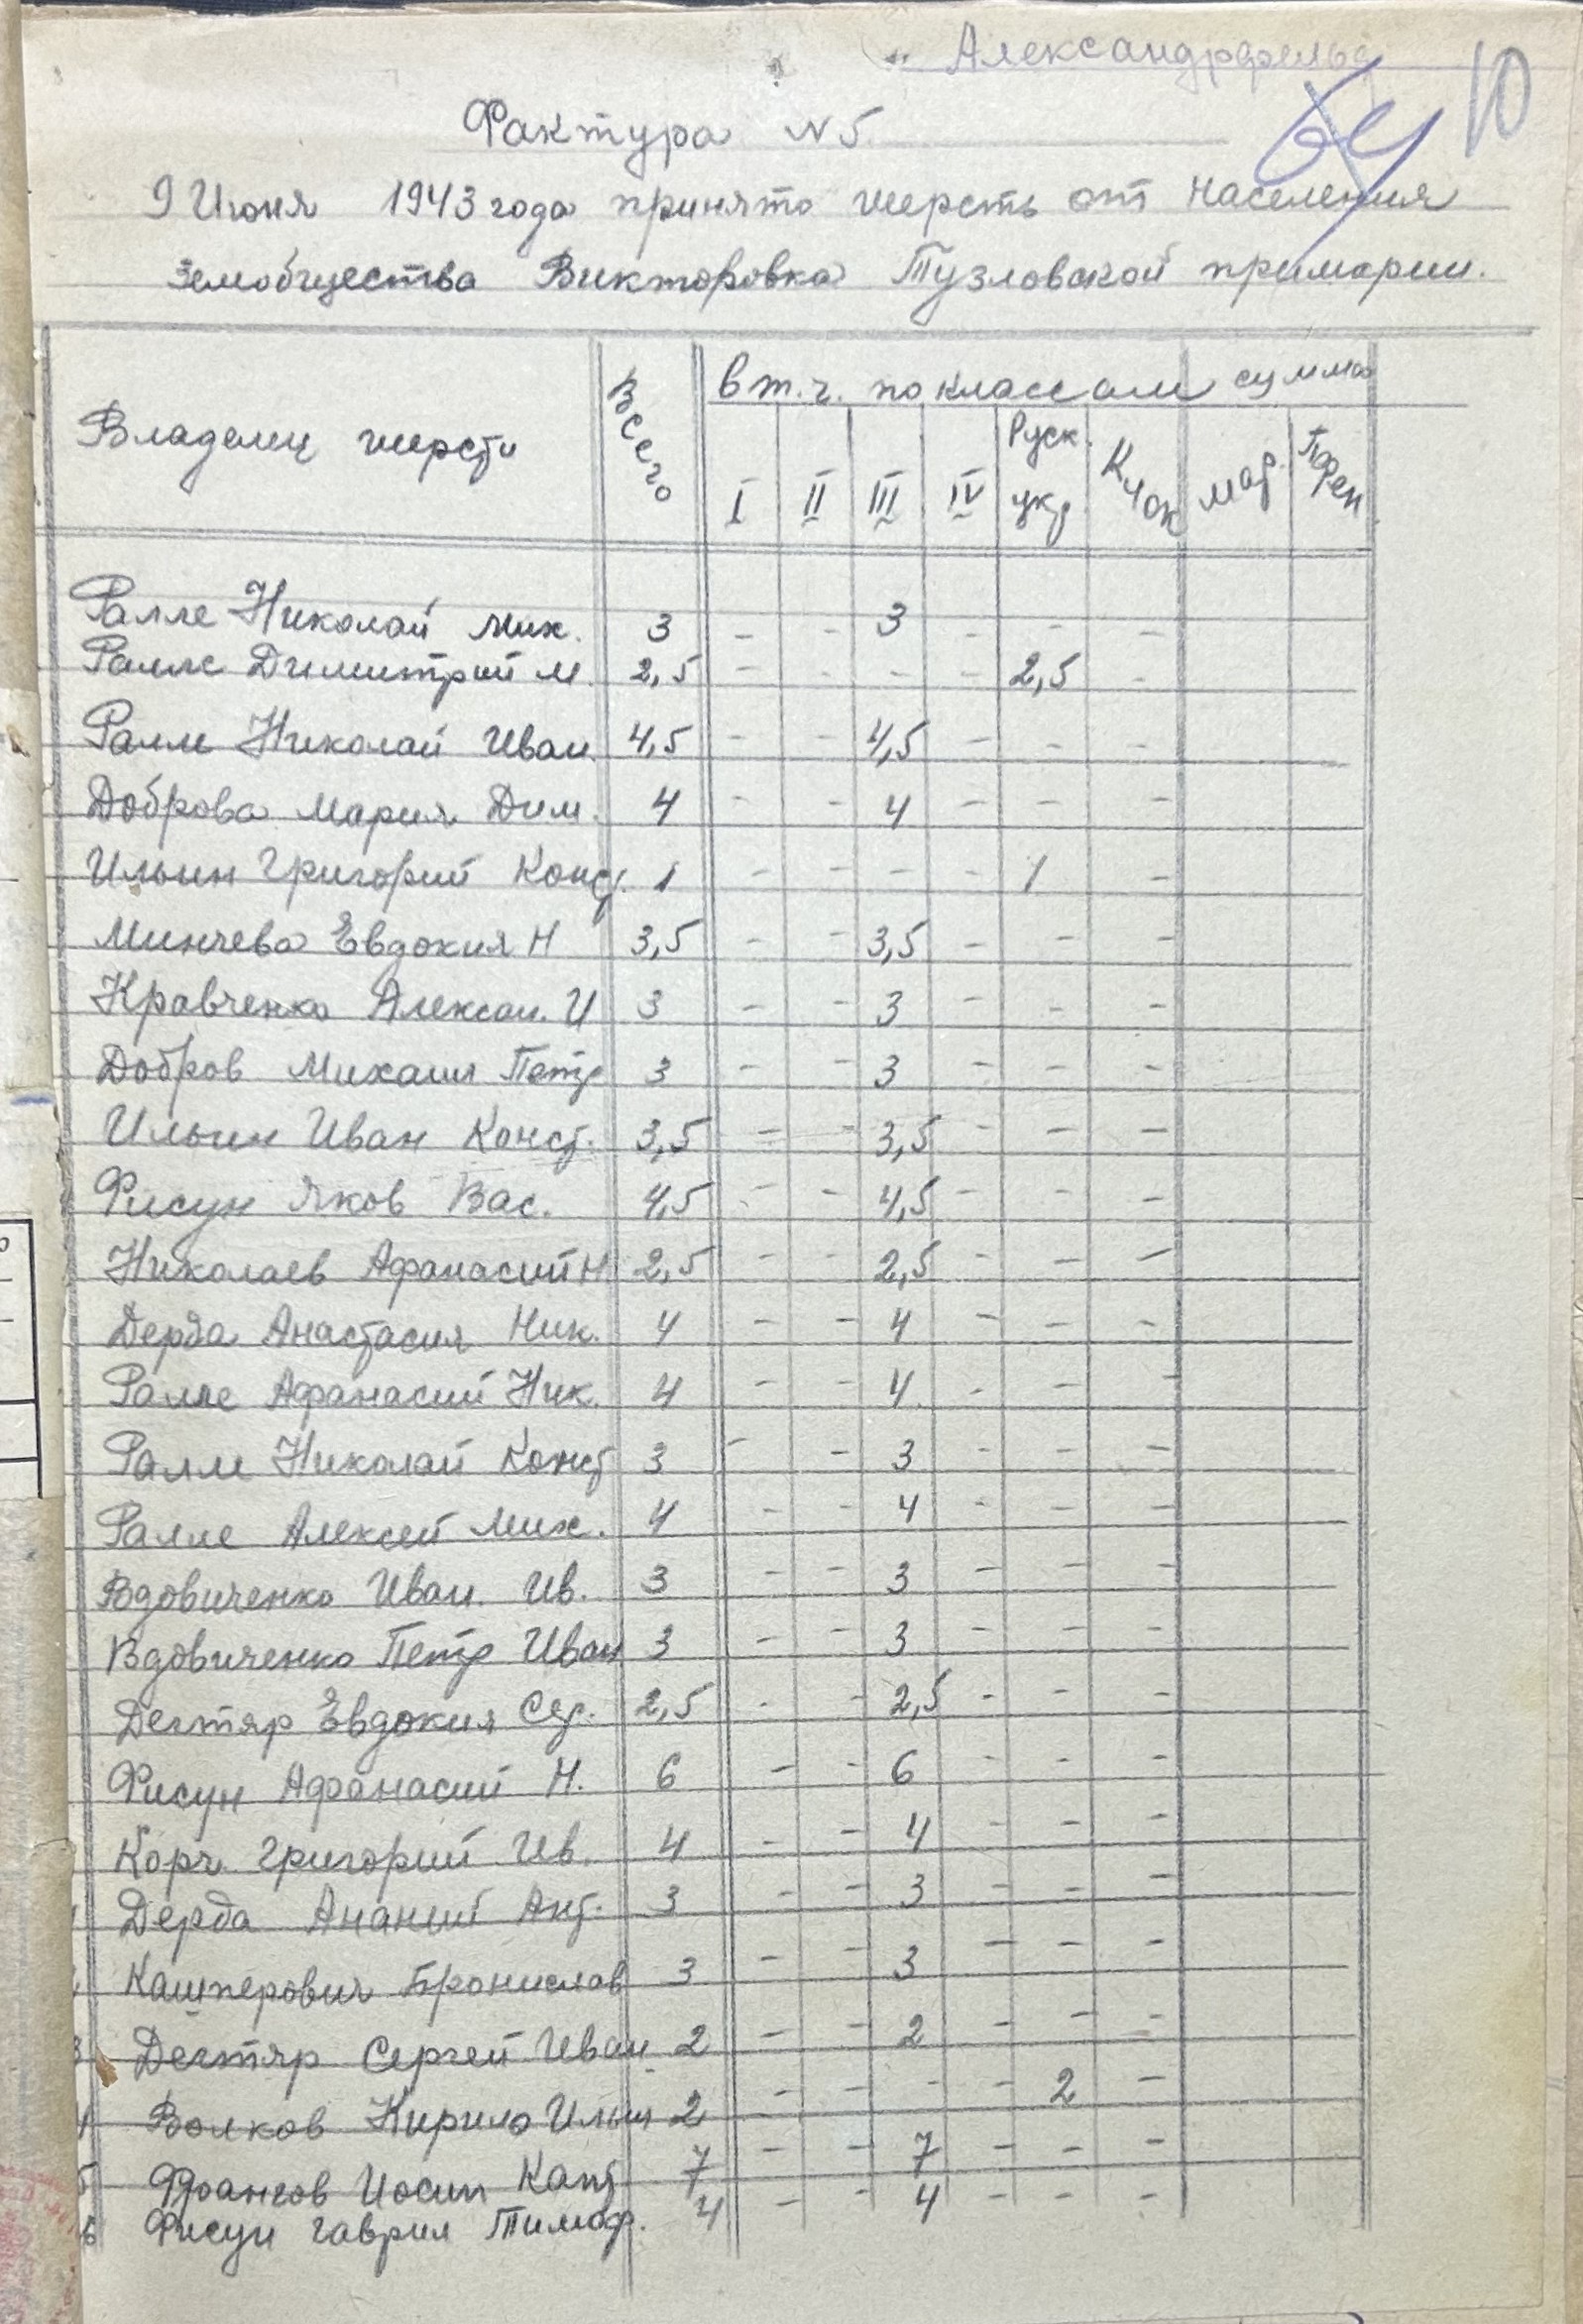 Александрфельд
64 10
Фактура N 5
9 Июня 1943 года принято шерсть от населения
Земобщества Викторовка Тузловской примарии.
Владелец шерсти Всего в т.ч. по классам сумма
I II III IV Руск. укр. Клок мар. Пфен
Ралле Николай Мих. 3 - - 3 - - -
Ралле Димитрий М. 2,5 - - - - 2,5 -
Ралле Николай Иван. 4,5 - - 4,5 - - -
Доброва Мария Дим. 4 - - 4 - - -
Ильин Григорий Конст. 1 - - - - 1 -
Минчева Евдокия Н 3,5 - - 3,5 - - -
Кравченко Алексан. И 3 - - 3 - - -
Добров Михаил Петр 3 - - 3 - - -
Ильин Иван Конст. 3,5 - - 3,5 - - -
Фисун Яков Вас. 4,5 - - 4,5 - - -
Николаев Афанасий Н 2,5 - - 2,5 - - -
Дерда Анастасия Ник. 4 - - 4 - - -
Ралле Афанасий Ник. 4 - - 4 - - -
Ралле Николай Конст 3 - - 3 - - -
Ралле Алексей Мих. 4 - - 4 - - -
Вдовиченко Иван. Ив. 3 - - 3 - - -
Вдовиченко Петр Иван 3 - - 3 - - -
Дегтяр Евдокия Сер. 2,5 - - 2,5 - - -
Фисун Афанасий Н. 6 - - 6 - - -
Корч. Григорий Ив. 4 - - 4 - - -
Дерда Ананий Ант. 3 - - 3 - - -
Кашперович Бронислав 3 - - 3 - - -
3 Дегтяр Сергей Иван 2 - - 2 - - -
Волков Кирило Ильич 2 - - - - 2 -
5 Иосип 7 - - 7 - - -
6 Фисун Гаврил Тимоф. 4 - - 4 - - -